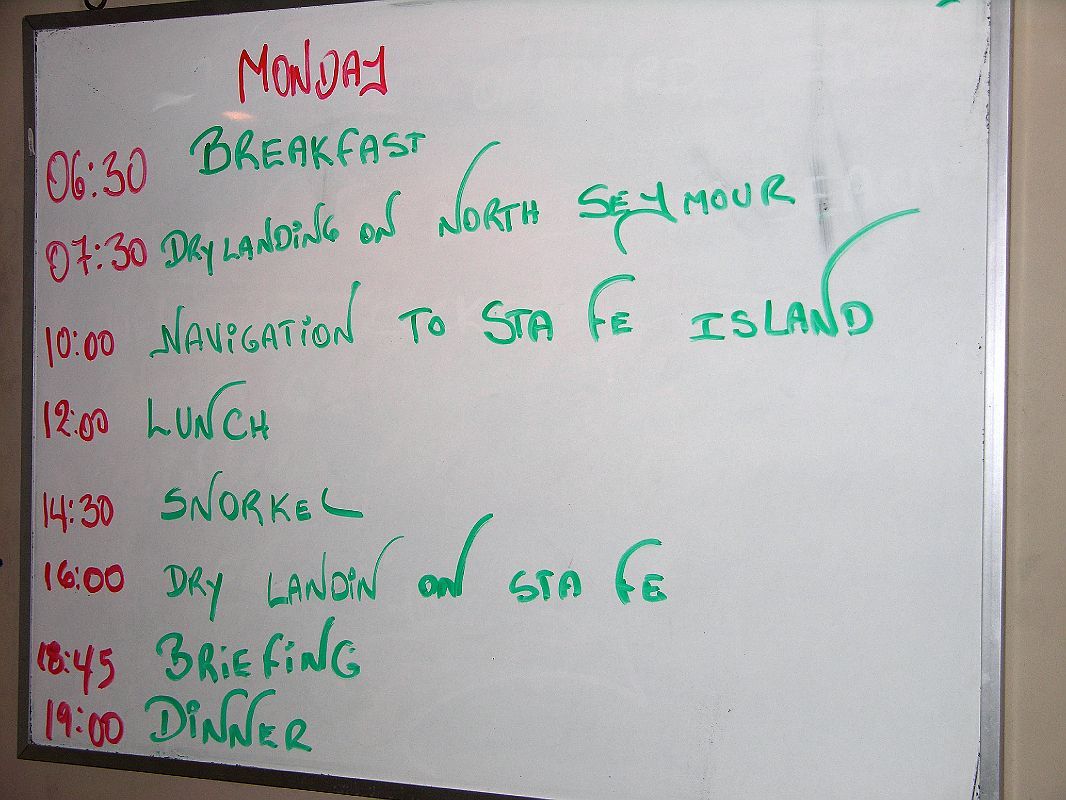 MONDAY
06:30 BREAKFAST
07:30 DRY LANDING ON NORTH SEYMOUR
10:00 NAVIGATION TO STA FE ISLAND
12:00 LUNCH
14:30 SNORKEL
16:00 DRY LANDIN ON STA FE
18:45 BRIEFING
19:00 DINNER